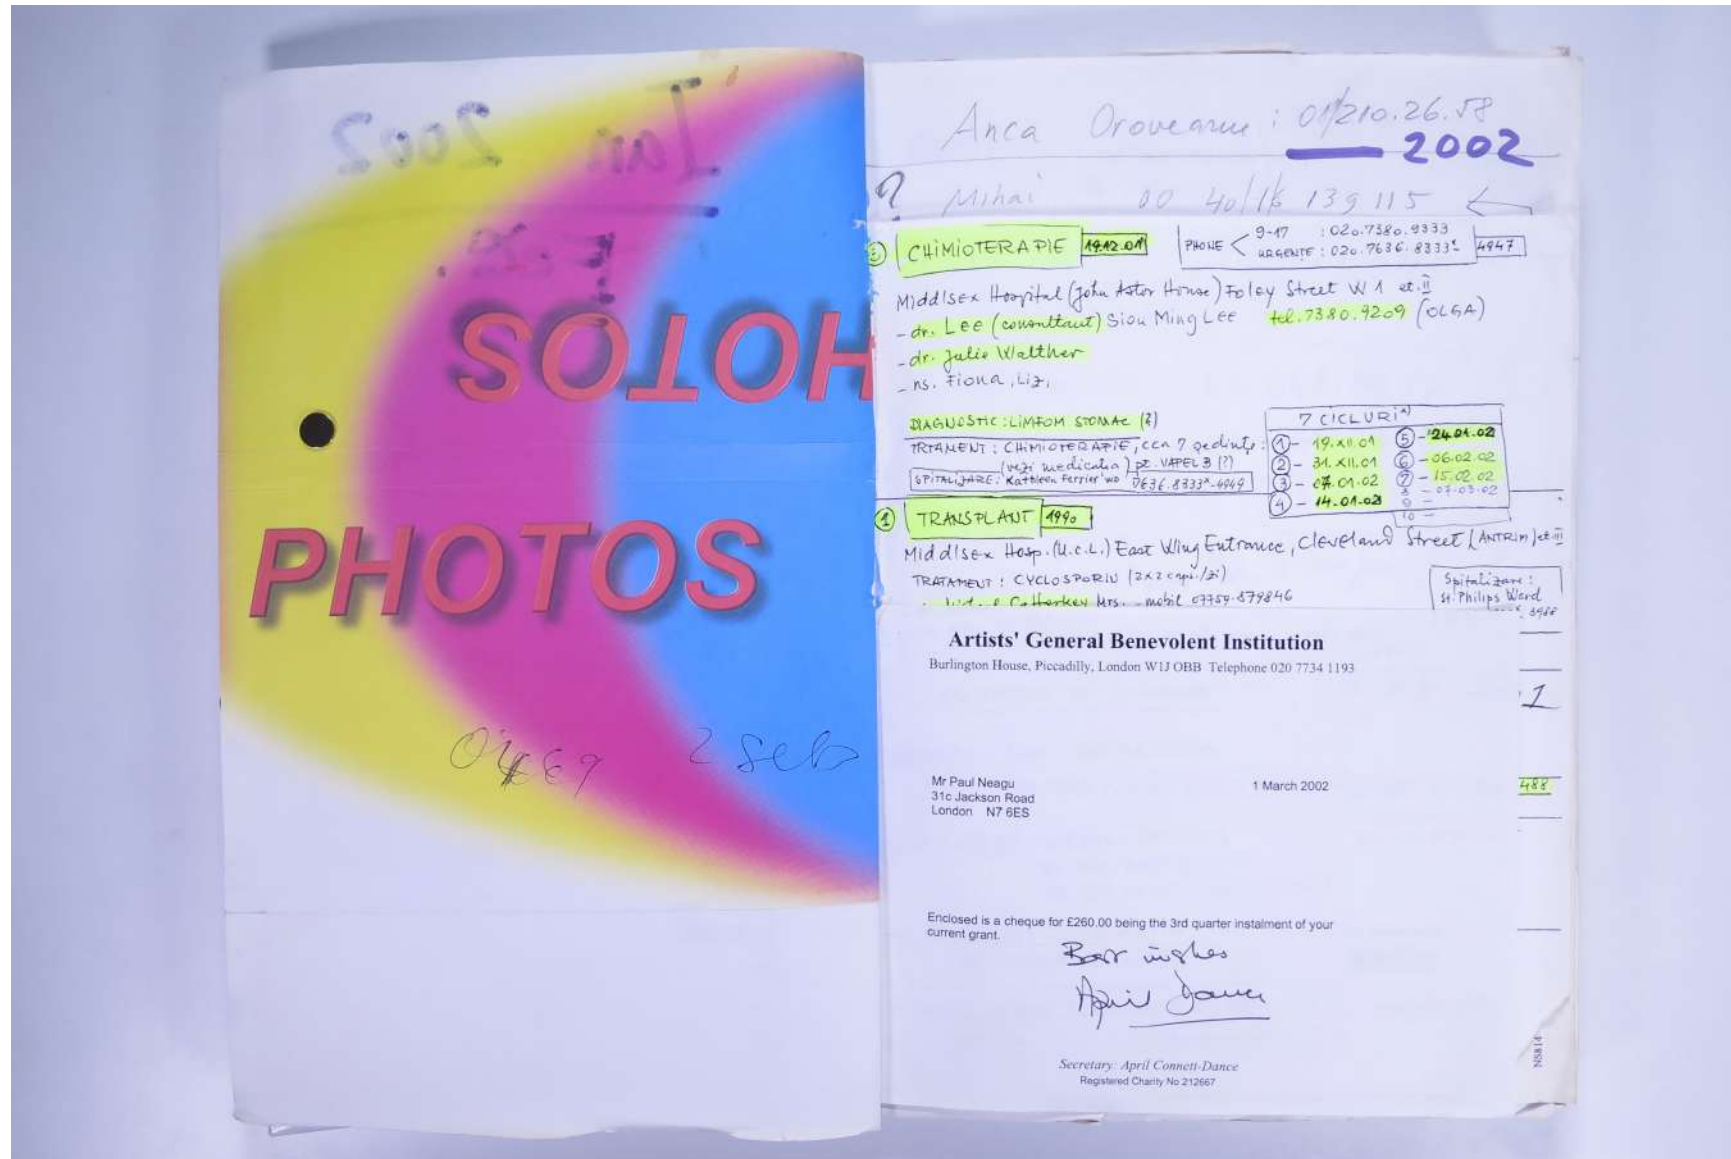 Ian 2002
Feb.
PHOTOS
PHOTOS
Anca Oroveanu : 01/210.26.58
2002
? Mihai 00 40/16 139 115
② CHIMIOTERAPIE 19.12.01 PHONE < 9-17 : 020.7380.9333
URGENTE : 020.7636.8333x 4947
Middlsex Hospital (John Astor House) Foley Street W1 et.II
- dr. Lee (consultant) Siou Ming Lee tel.7380.9209 (OLGA)
- dr. Julie Walther
- ns. Fiona, Liz,
DIAGNOSTIC : LIMFOM STOMAC (?)
TRTAMENT : CHIMIOTERAPIE, cca 7 ședințe :
(vezi medicatia) pt. VAPEL 3 (?)
SPITALIZARE : Kathleen Ferrier wo 7636.8333x-4949
7 CICLURI
① - 19.XII.01 ⑤ - 24.01.02
② - 31.XII.01 ⑥ - 06.02.02
③ - 07.01.02 ⑦ - 15.02.02
④ - 14.01.02 8 - 07.03.02
9 -
10 -
① TRANSPLANT 1990
Middlsex Hosp. (U.C.L.) East Wing Entrance, Cleveland Street (ANTRIM) et.III
TRATAMENT : CYCLOSPORIN (2x2 caps./zi)
Mrs. - mobil 07759.879846
Spitalizare :
St Philips Ward
3988
Artists' General Benevolent Institution
Burlington House, Piccadilly, London W1J OBB Telephone 020 7734 1193
1
Mr Paul Neagu 1 March 2002
31c Jackson Road
London N7 6ES
488
Enclosed is a cheque for £260.00 being the 3rd quarter instalment of your
current grant.
Best wishes
April Dance
Secretary: April Connett-Dance
Registered Charity No 212667
NS814